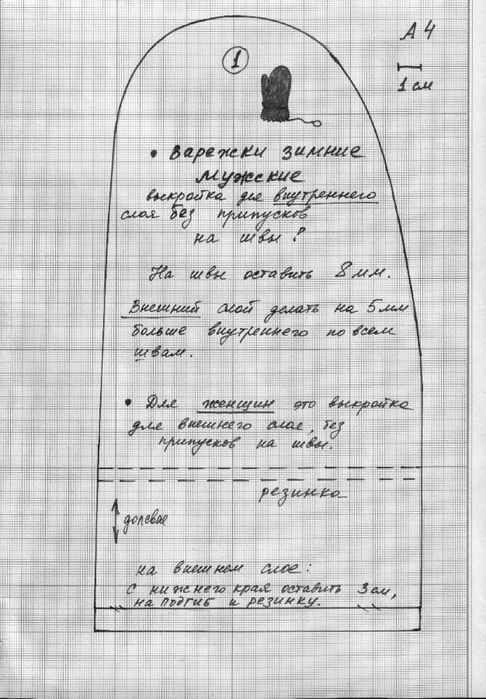 А4
1
1 см
• Варежски зимние
мужские
выкройка для внутреннего
слоя без припусков
на швы!
На швы оставить 8 мм.
Внешний слой делать на 5 мм
больше внутреннего по всем
швам.
• Для женщин это выкройка
для внешнего слоя, без
припусков на швы.
резинка
долевая
на внешнем слое:
с нижнего края оставить 3 см,
на подгиб и резинку.